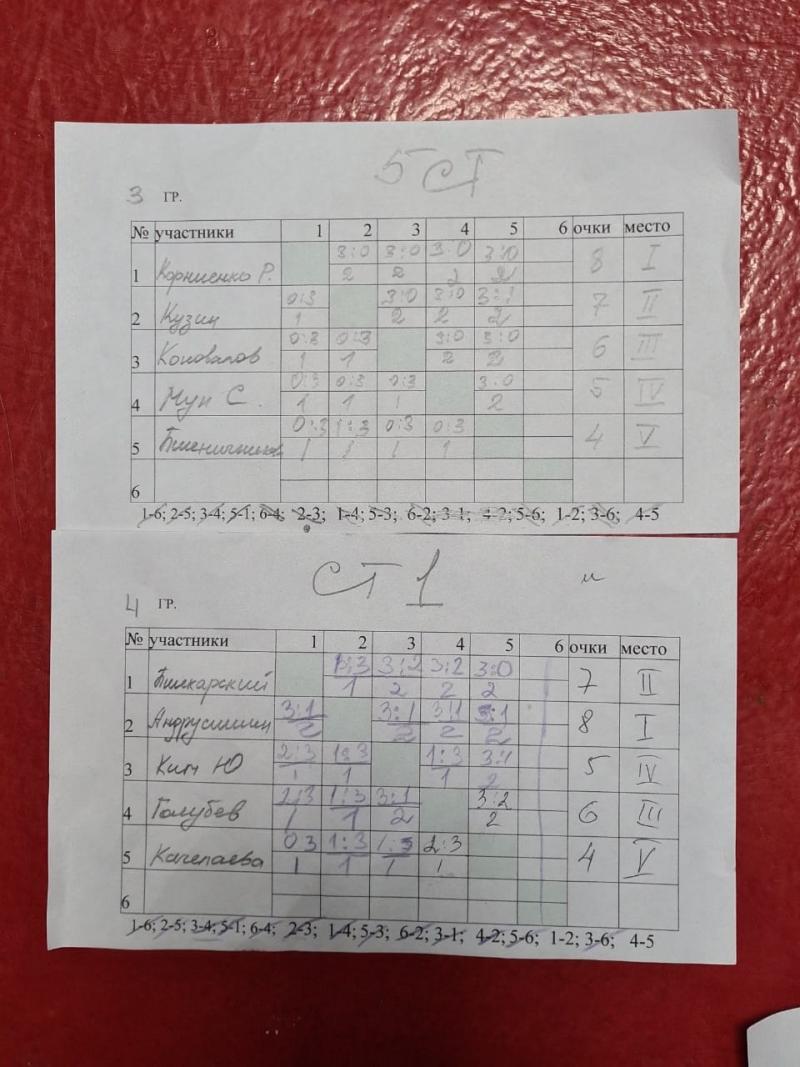 5 СТ
3 ГР.
№ участники 1 2 3 4 5 6 очки место
3:0 3:0 3:0 3:0
1 Корниенко Р. 2 2 2 2 8 I
0:3 3:0 3:0 3:1
2 Кузин 1 2 2 2 7 II
0:3 0:3 3:0 3:0
3 Коновалов 1 1 2 2 6 III
0:3 0:3 0:3 3:0
4 Мун С. 1 1 1 2 5 IV
0:3 1:3 0:3 0:3
5 1 1 1 1 4 V
6
1-6; 2-5; 3-4; 5-1; 6-4; 2-3; 1-4; 5-3; 6-2; 3-1; 4-2; 5-6; 1-2; 3-6; 4-5
СТ 1
4 ГР.
№ участники 1 2 3 4 5 6 очки место
1:3 3:2 3:2 3:0
1 1 2 2 2 7 II
3:1 3:1 3:1 3:1
2 2 2 2 2 8 I
2:3 1:3 1:3 3:1
3 Ким Ю 1 1 1 2 5 IV
2:3 1:3 3:1 3:2
4 Голубев 1 1 2 2 6 III
0:3 1:3 1:3 2:3
5 Качелаева 1 1 1 1 4 V
6
1-6; 2-5; 3-4; 5-1; 6-4; 2-3; 1-4; 5-3; 6-2; 3-1; 4-2; 5-6; 1-2; 3-6; 4-5